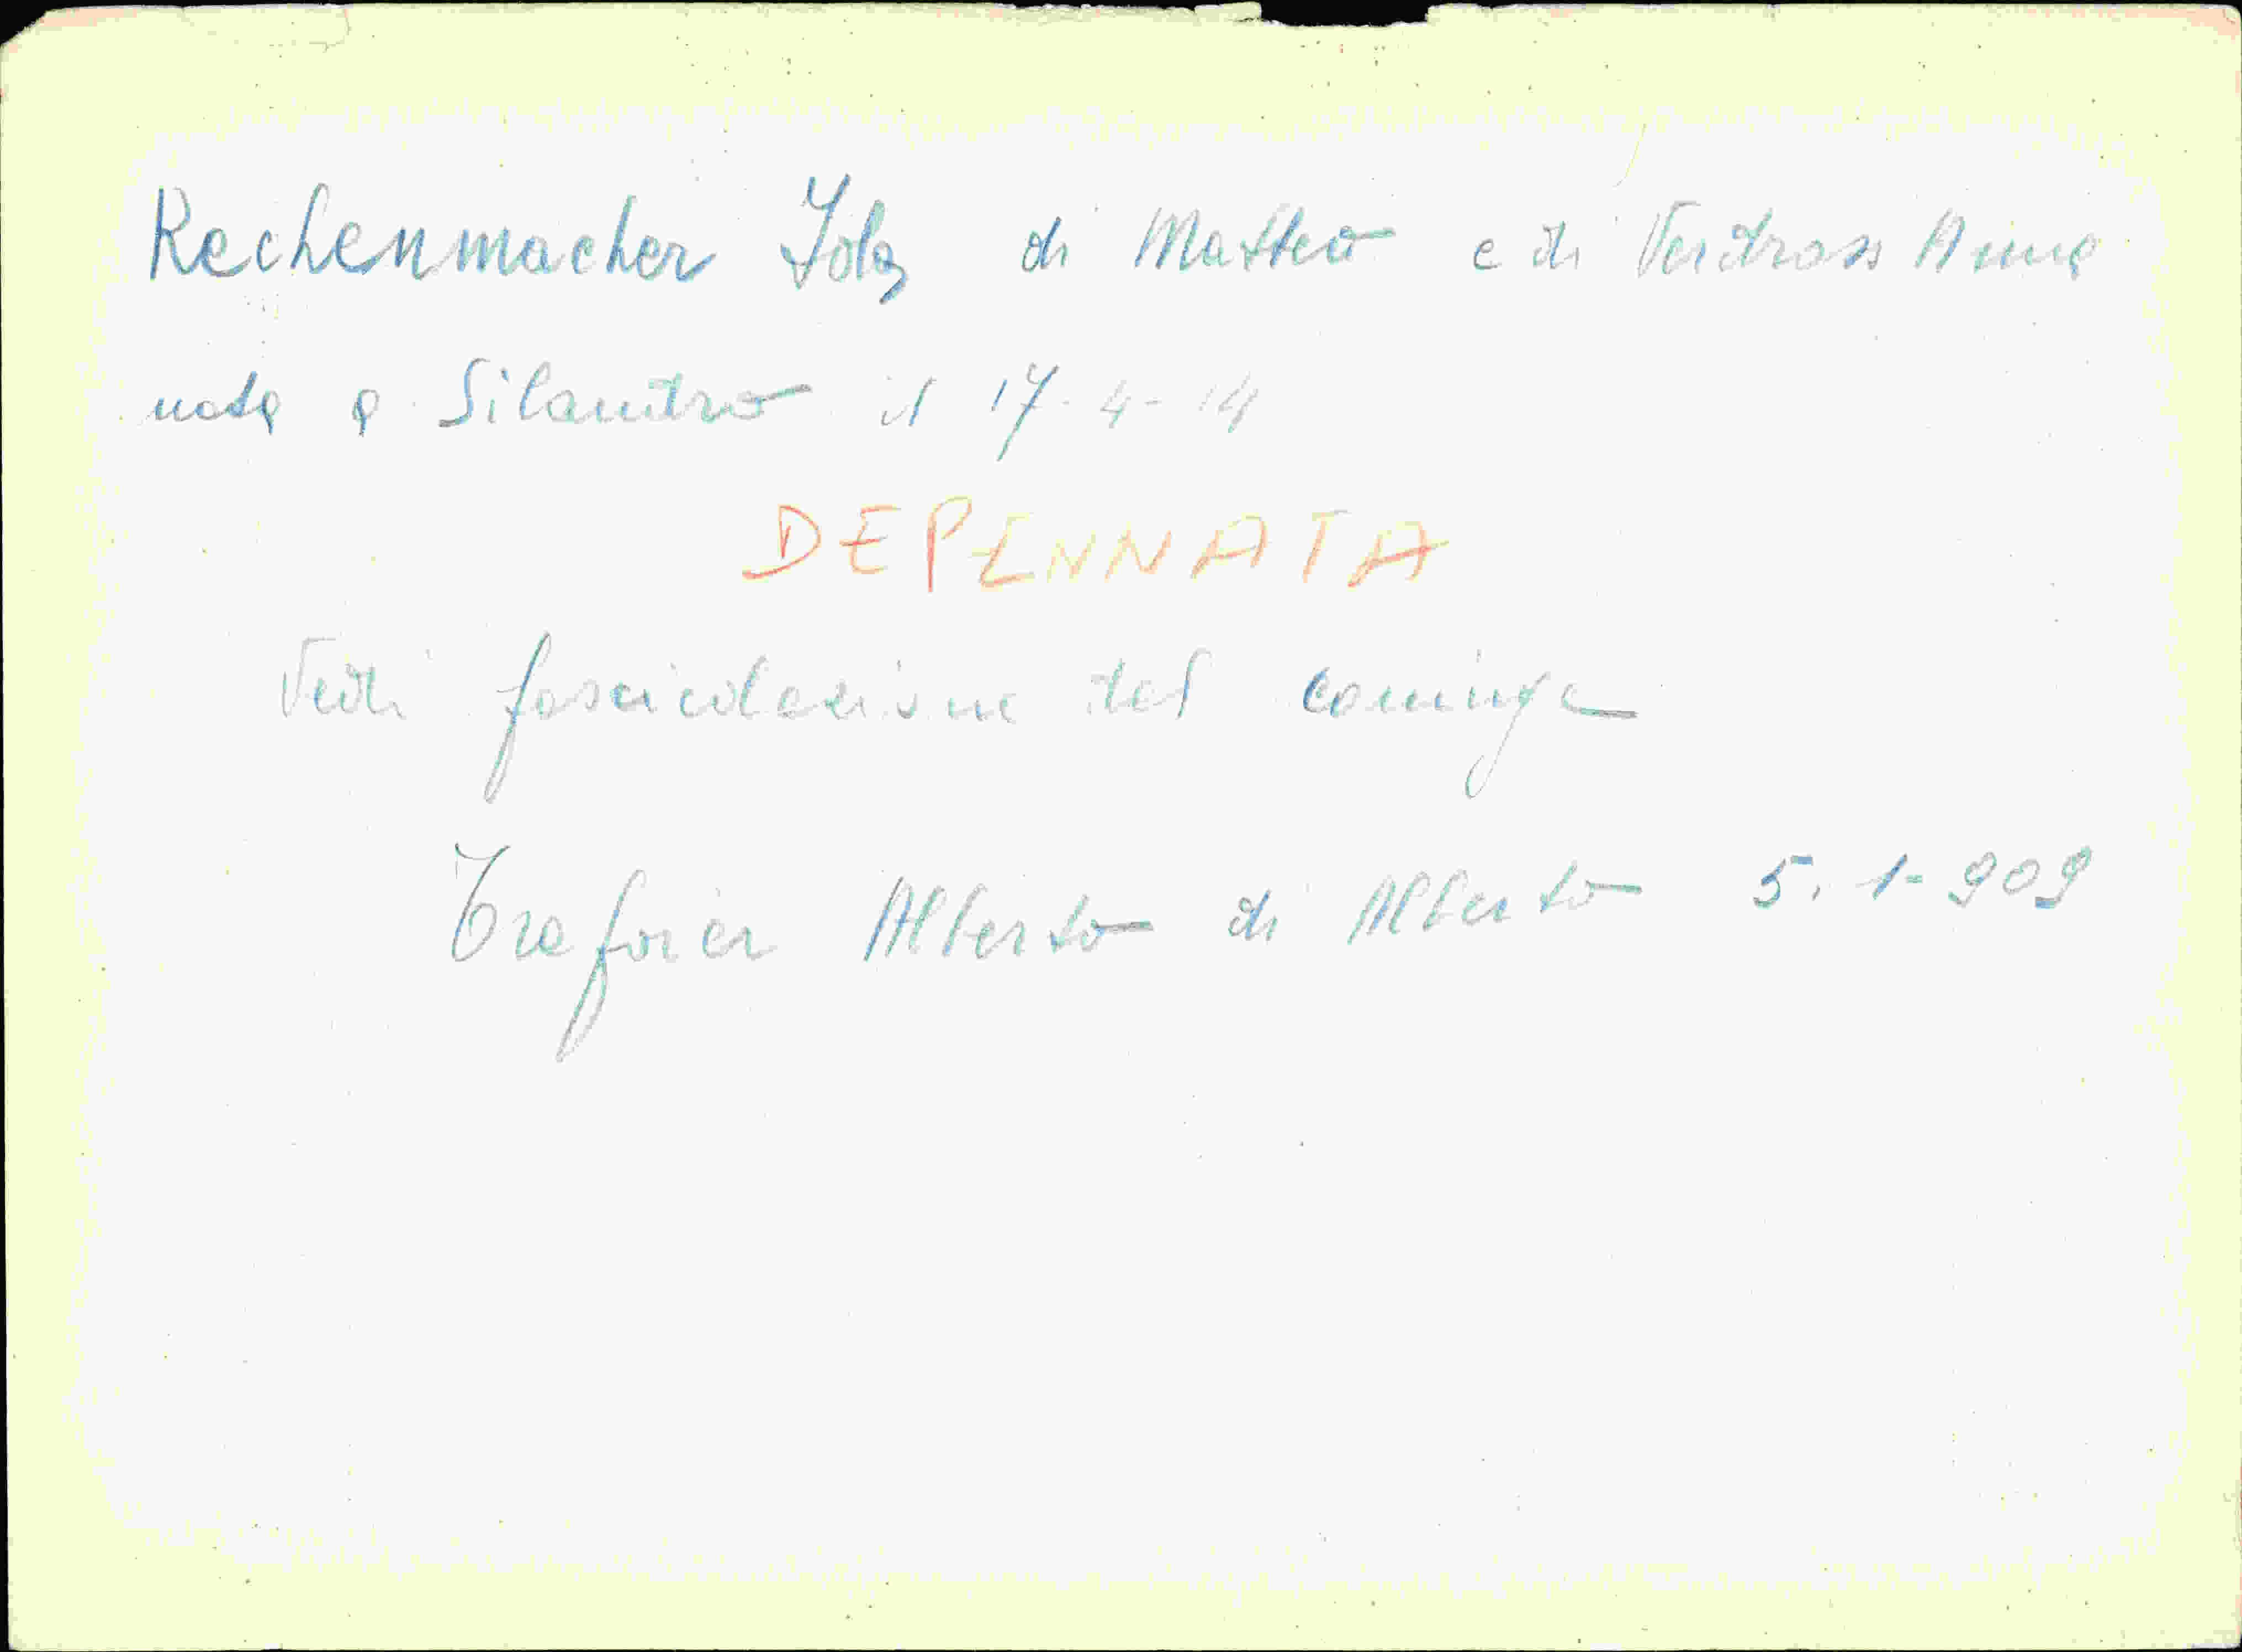 Rechenmacher Iola di Matteo e di Verdross Anna
nata a Silandro il 17-4-14
DEPENNATA
Vedi fascicolazione del coniuge
Trafoier Alberto di Alberto 5.1-909